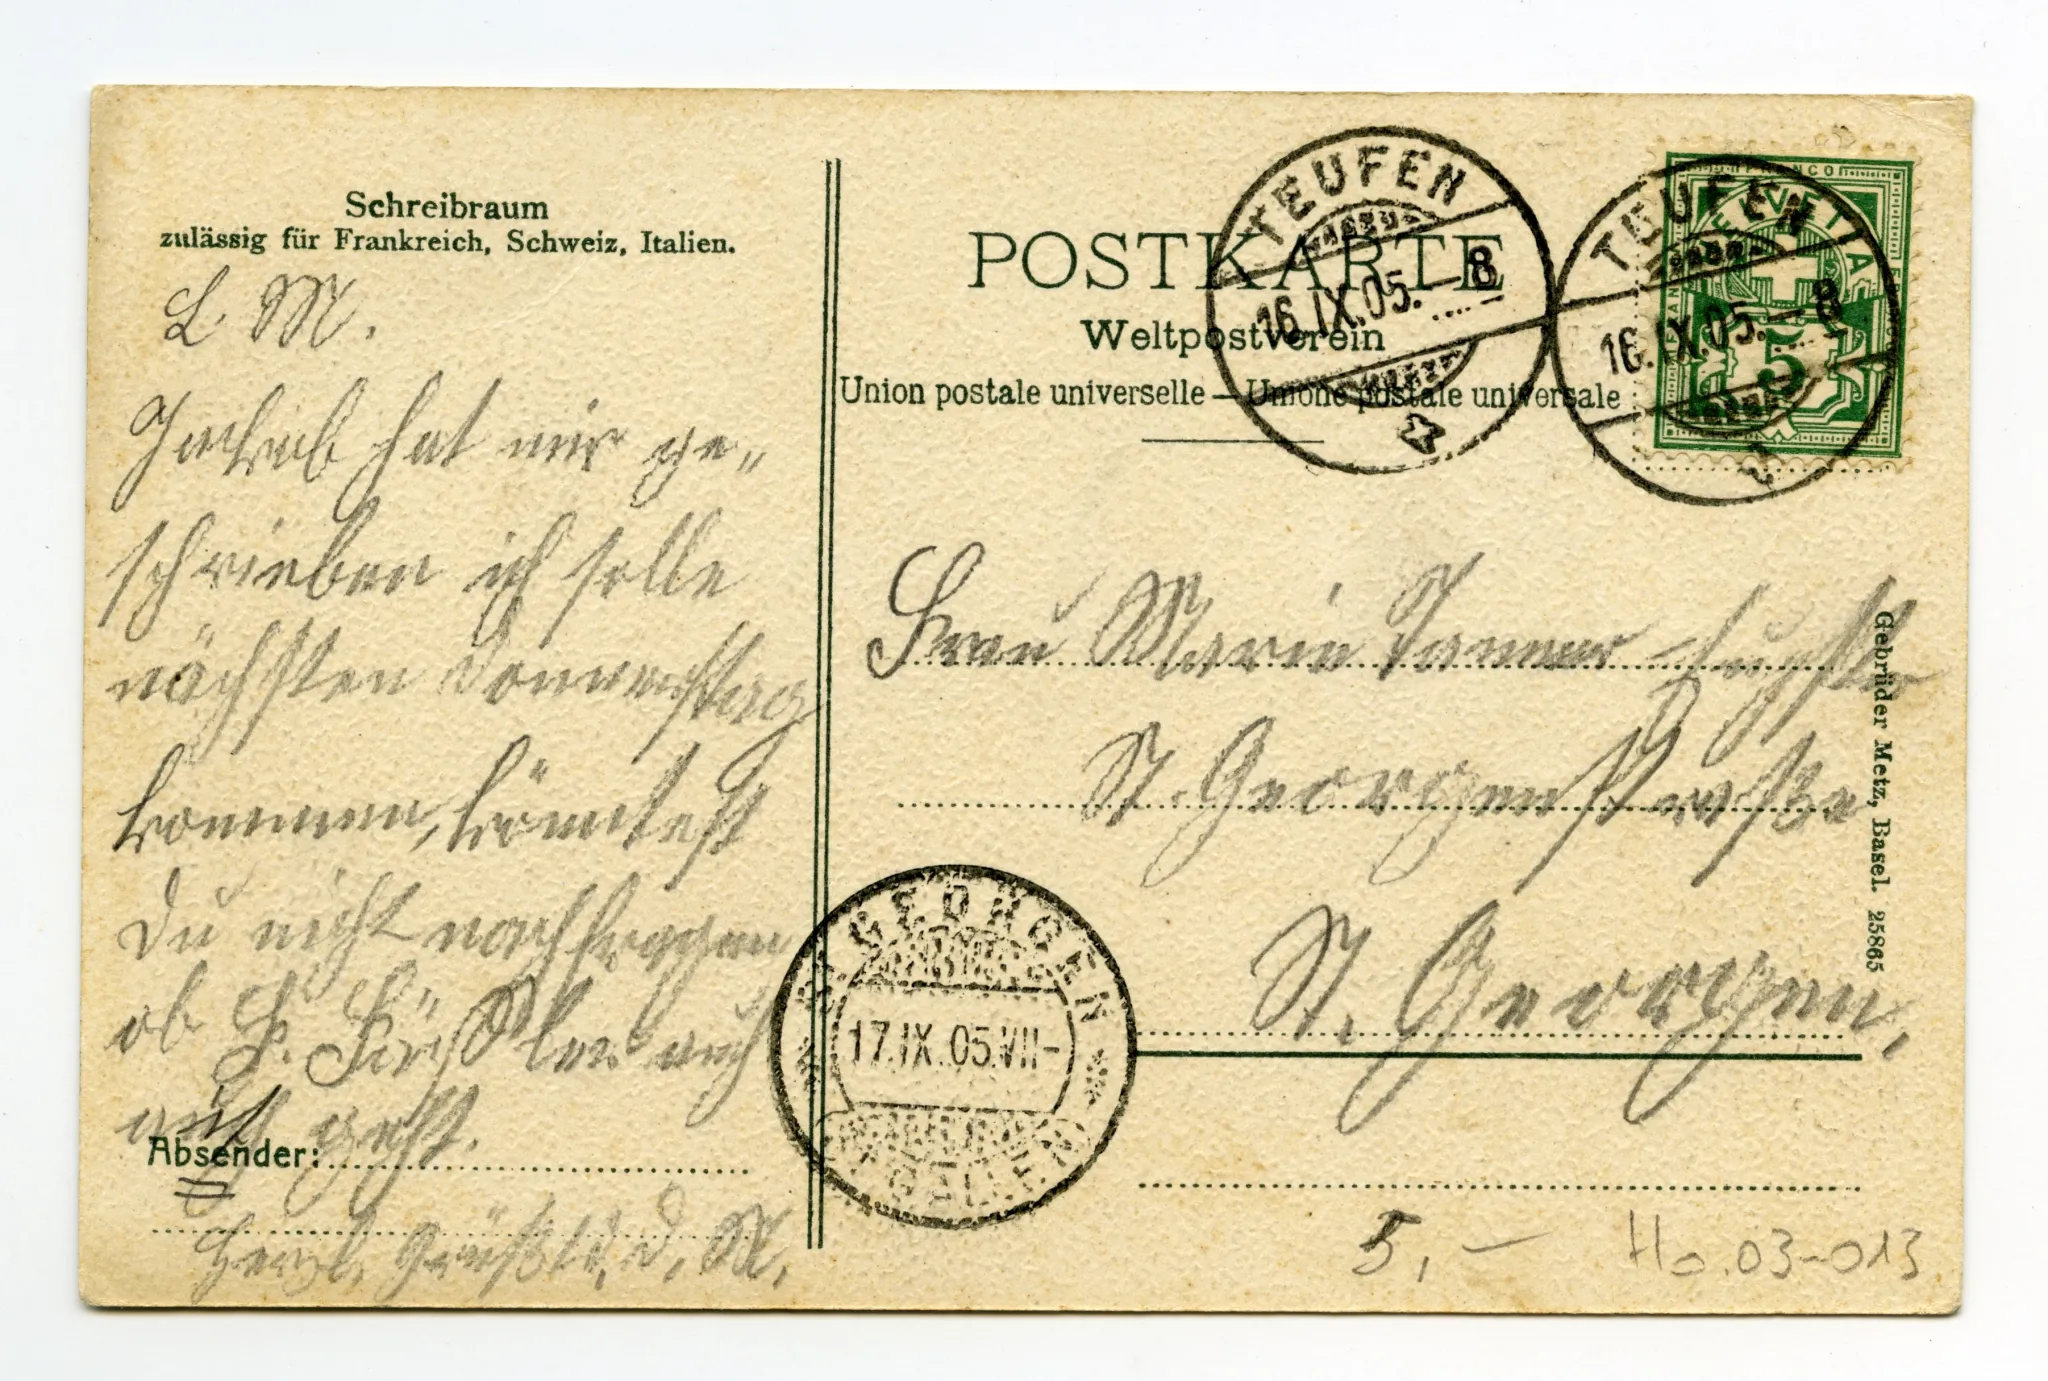 Schreibraum
zulässig für Frankreich, Schweiz, Italien.
L. M.
Jackob hat mir ge-
schrieben ich solle
nächsten Donnerstag
kommen, könntest
Du nicht nachfragen
ob F. Förstler auch
auch geht.
Absender:
Herzl. Grüßt d. M.
POSTKARTE
Weltpostverein
Union postale universelle — Unione postale universale
TEUFEN
16.IX.05.—8
TEUFEN
16.IX.05.—8
FRANCO
HELVETIA
5
Frau Marie Tanner
St. Georgenstraße
St. Georgen,
ST. GEORGEN
17.IX.05.VII-
Gebrüder Metz, Basel. 25865
5,— Ho.03-013